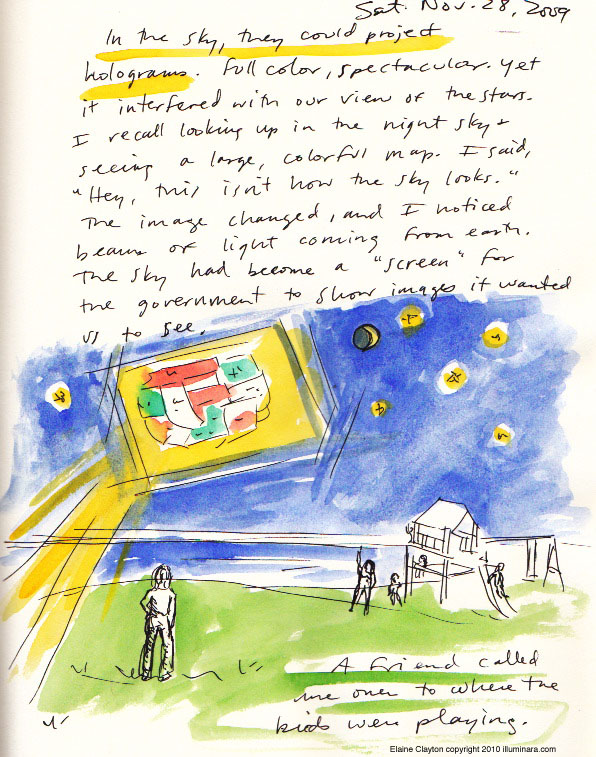 Sat. Nov. 28, 2009
In the sky, they could project
holograms. Full color, spectacular. yet
it interfered with our view of the stars.
I recall looking up in the night sky +
seeing a large, colorful map. I said,
"Hey, this isn't how the sky looks."
The image changed, and I noticed
beams of light coming from earth.
The sky had become a "screen" for
the government to show images it wanted
us to see.
A friend called
me over to where the
kids were playing.
Elaine Clayton copyright 2010 illuminara.com